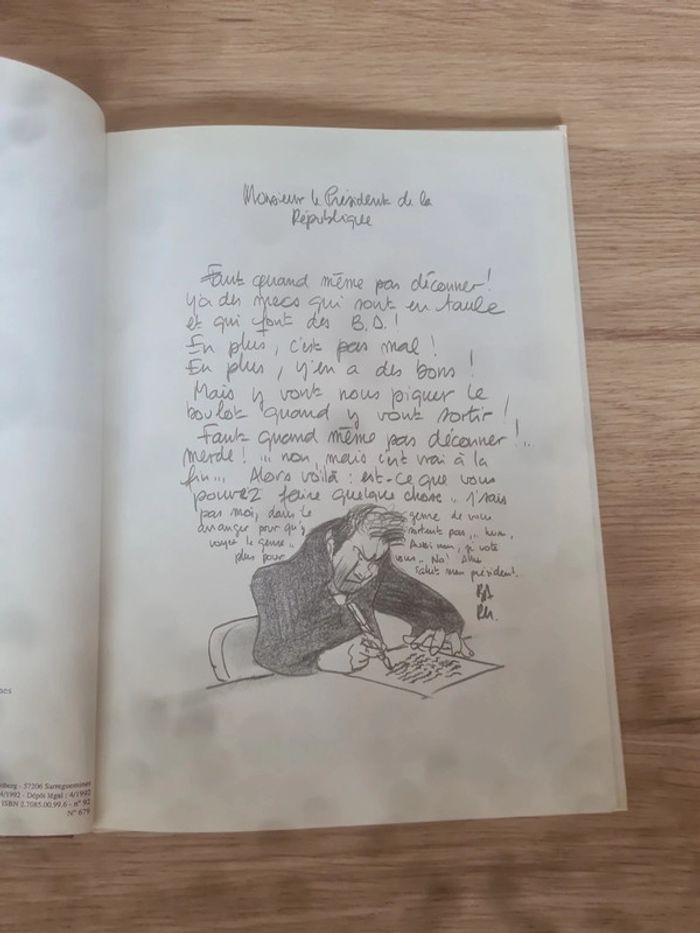 Monsieur le Président de la
République
Faut quand même pas déconner !
y'a des mecs qui sont en taule
et qui font des B.D. !
En plus, c'est pas mal !
En plus, y'en a des bons !
Mais y vont nous piquer le
boulot quand y vont sortir !
Faut quand même pas déconner !..
merde ! ... non, mais c'est vrai à la
fin... Alors voilà : est-ce que vous
pouvez faire quelque chose .. j'sais
pas moi, dans le genre de vous
arranger pour qu'y sortent pas, ... hum,
voyez le genre .. Aussi non, j'vote
plus pour vous .. No !
Salut mon président.
nes
berg - 57206 Sarreguemines
4/1992 - Dépôt légal : 4/1992
ISBN 2.7085.00.99.6 - n° 92
N° 679